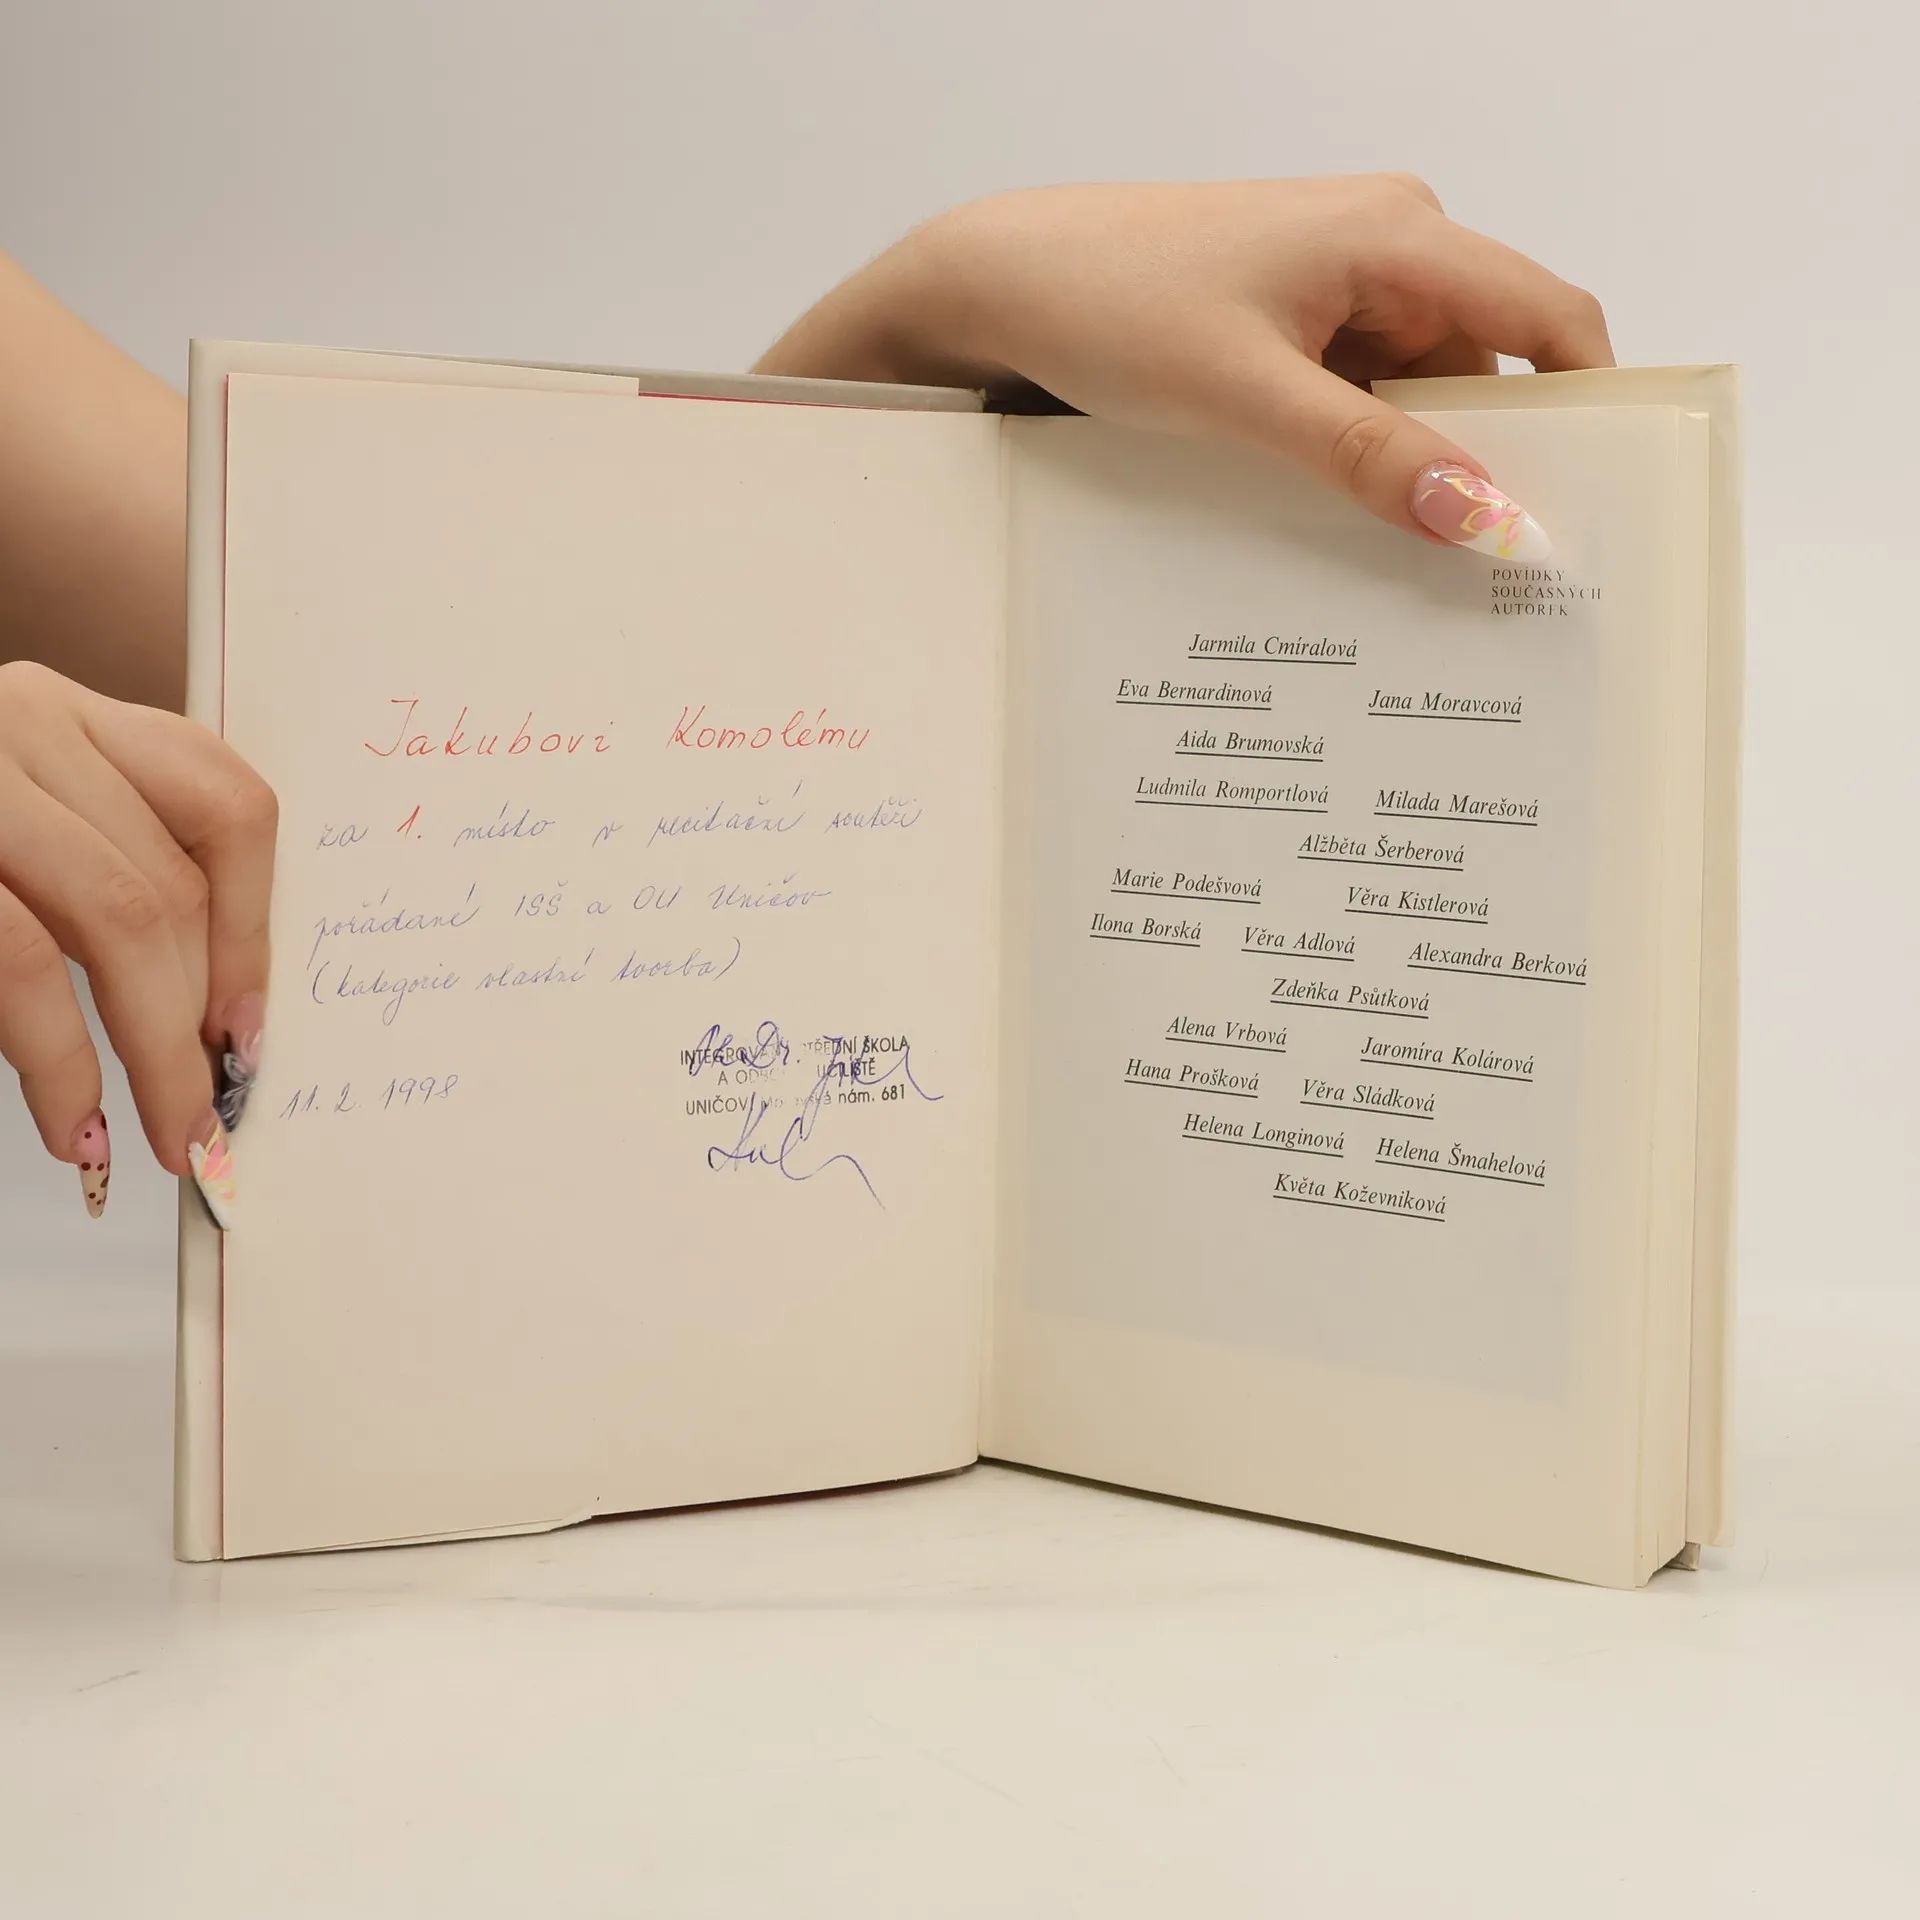 Jakubovi Komolému
za 1. místo v recitační soutěži
pořádané ISŠ a OU Uničov
(kategorie vlastní tvorba)
11. 2. 1998
INTEGROVANÁ STŘEDNÍ ŠKOLA
A UČILIŠTĚ
UNIČOV, nám. 681
POVÍDKY
SOUČASNÝCH
AUTOREK
Jarmila Cmíralová
Eva Bernardinová Jana Moravcová
Aida Brumovská
Ludmila Romportlová Milada Marešová
Alžběta Šerberová
Marie Podešvová Věra Kistlerová
Ilona Borská Věra Adlová Alexandra Berková
Zdeňka Psůtková
Alena Vrbová Jaromíra Kolárová
Hana Prošková Věra Sládková
Helena Longinová Helena Šmahelová
Květa Koževniková